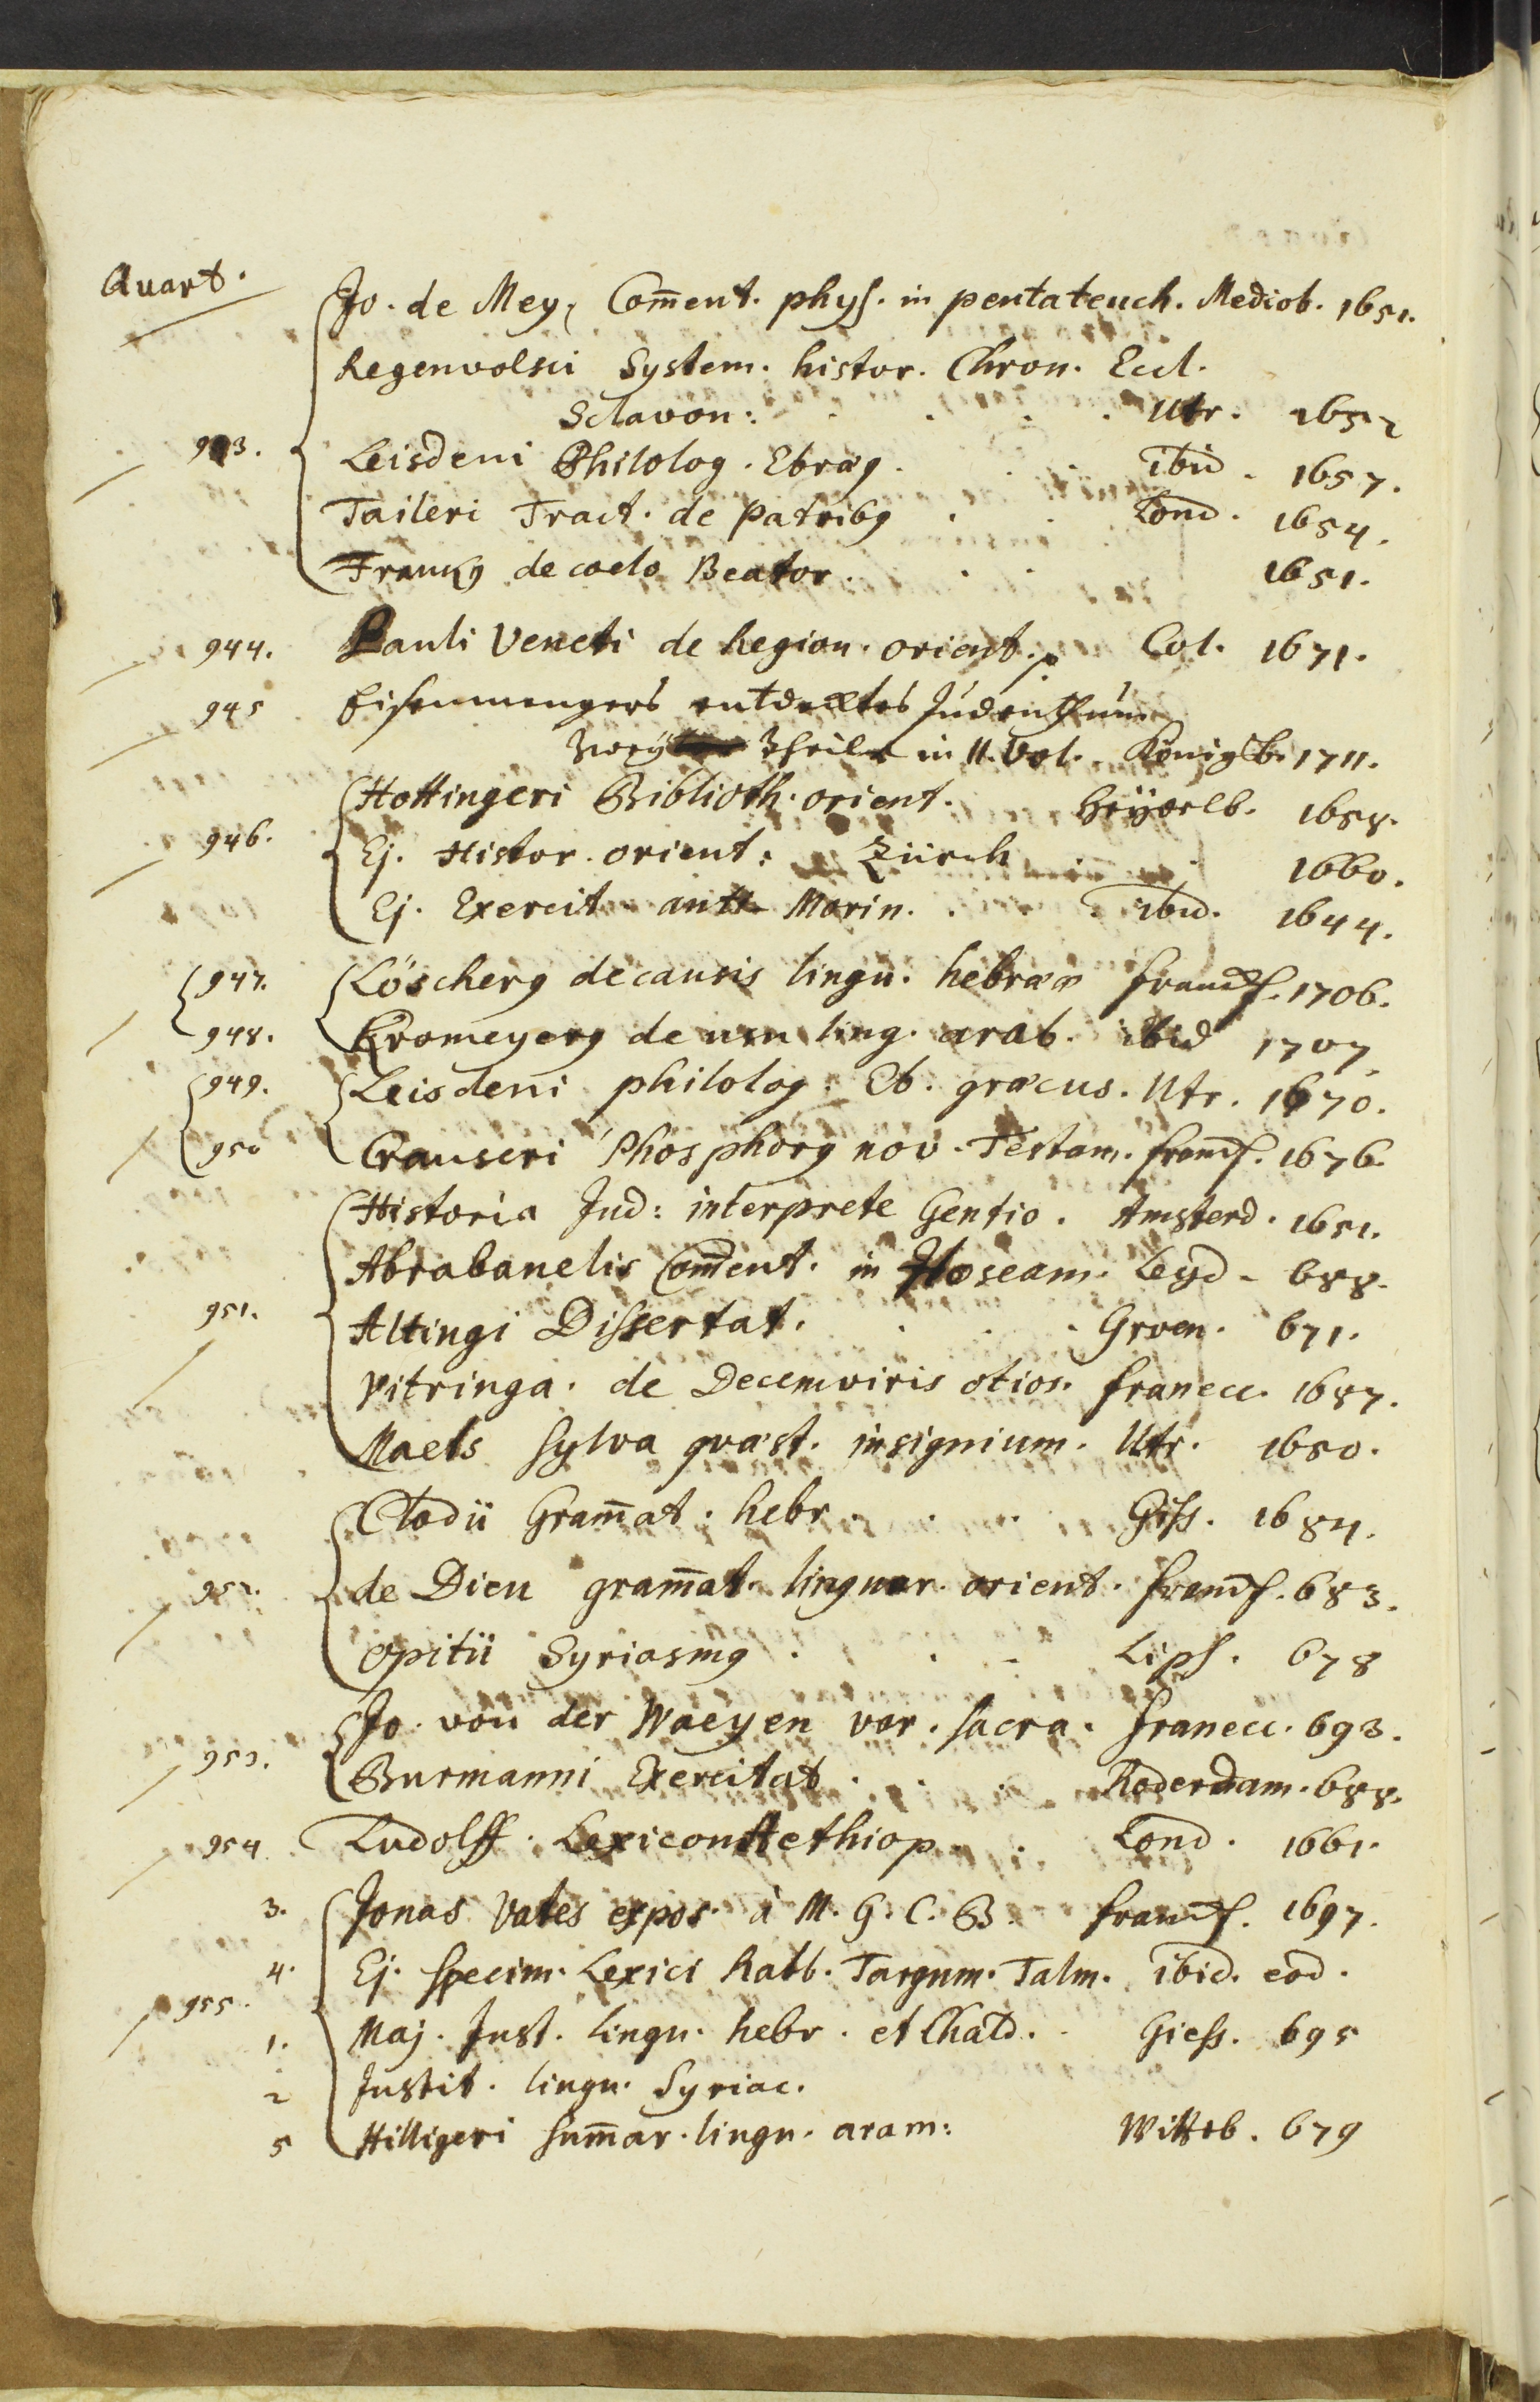 Quart.
Jo. de Mey, Com̄ent. phys. in pentateuch. Mediob. 1651.
Regenvolsci System. histor. Chron. Eccl.
Sclavon: . . . . Utr. 1652
943. Leisdeni Philolog. Ebræ9 . . . ibid. 1657.
Taileri Tract. de Patrib9 . . Lond. 1654.
Franz9 de coelo Beator. . . 1651.
944. Pauli Veneti de Region. orient. Col. 1671.
945 Eisenmengers entdecktes Judenthum
Zwey Theile in II. Vol. Königsb. 1711.
Hottingeri Biblioth. orient. Heydelb. 1658.
946. Ej. Histor. orient: Zürch 1660.
Ej. Exercit. anti Morin. . . ibid. 1644.
947. Löscher9 de causis lingu. hebrææ Francf. 1706.
948. Kromeyer9 de usu ling. arab. ibid 1707.
949. Leisdeni philolog. Eb. græcus. Utr. 1670.
950 Crauseri Phosphor9 nov. Testam. Francf. 1676.
Historia Jud: interprete Gentio. Amsterd. 1651.
Abrabanelis Com̄ent. in Hoseam. Leyd. 688.
951. Altingi Dissertat. . . . Groen. 671.
Vitringa. de Decemviris otios. Franecc. 1687.
Maets Sylva quæst. insignium. Utr. 1650.
Clodii Gram̄at. hebr. . . . Giss. 1684.
952. de Dieu gram̄at. linguar. orient. Francf. 683.
Opitii Syriasm9 . . . Lips. 678
Jo. von der Waeyen var. sacra. Franecc. 693.
953. Burmanni Exercitat . . . Roderdam. 688.
954. Ludolff. Lexicon Aethiop. . Lond. 1661.
3. Jonas Vates expos. à M. G. C. B. Francf. 1697.
4. Ej. Specim. Lexici Rabb. Targum. Talm. ibid. eod.
955. 1. Maj. Inst. lingu. hebr. et Chald. . Giess. 695
2 Instit. lingu. Syriac.
5 Hilligeri Sum̄ar. lingu. aram: Witteb. 679